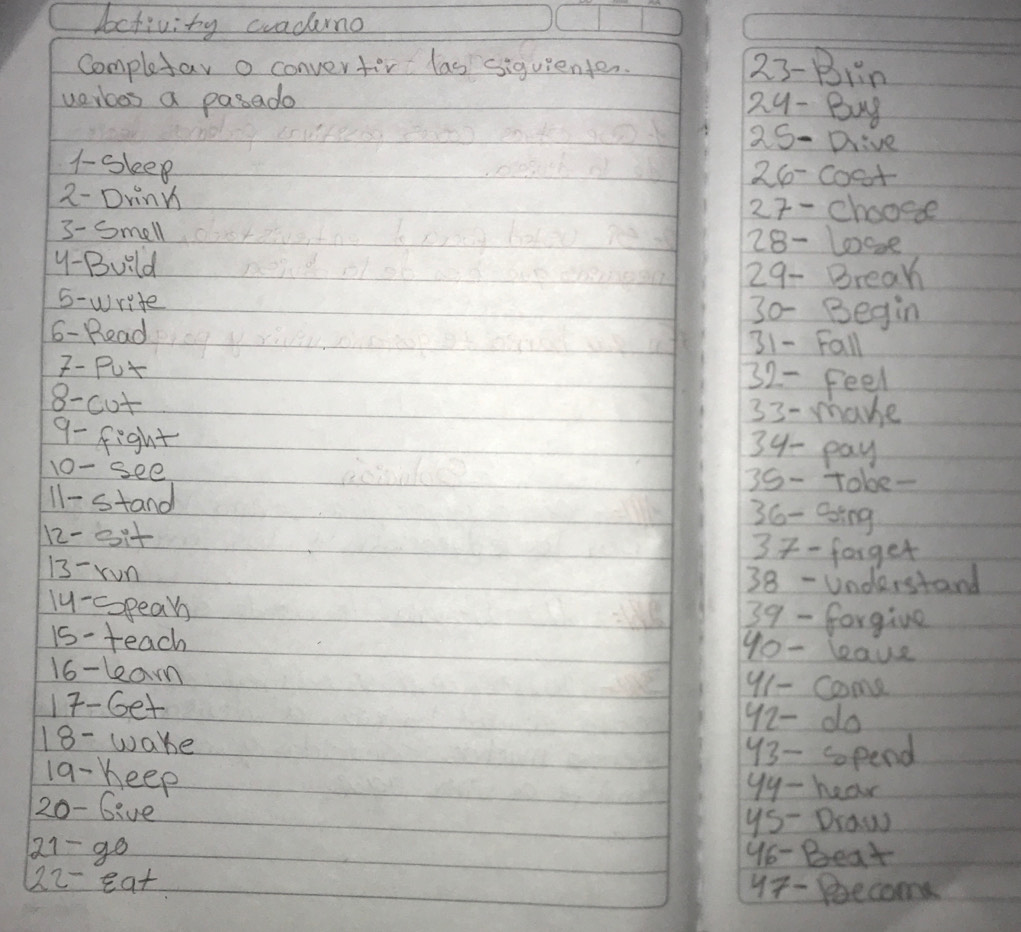 Activity cuaderno
Completar o convertir las siguientes.
verbos a pasado
1-Sleep
2-Drink
3-Smell
4-Build
5-write
6-Read
7-Put
8-cut
9-fight
10-see
11-stand
12-sit
13-run
14-speak
15-teach
16-learn
17-Get
18-wake
19-Keep
20-Give
21-go
22-Eat
23-Brin
24-Buy
25-Drive
26-Cost
27-Choose
28-Lose
29-Break
30-Begin
31-Fall
32-Feel
33-make
34-pay
35-Tobe-
36-Sing
37-forget
38-understand
39-forgive
40-leave
41-Come
42-do
43-Spend
44-hear
45-Draw
46-Beat
47-Become